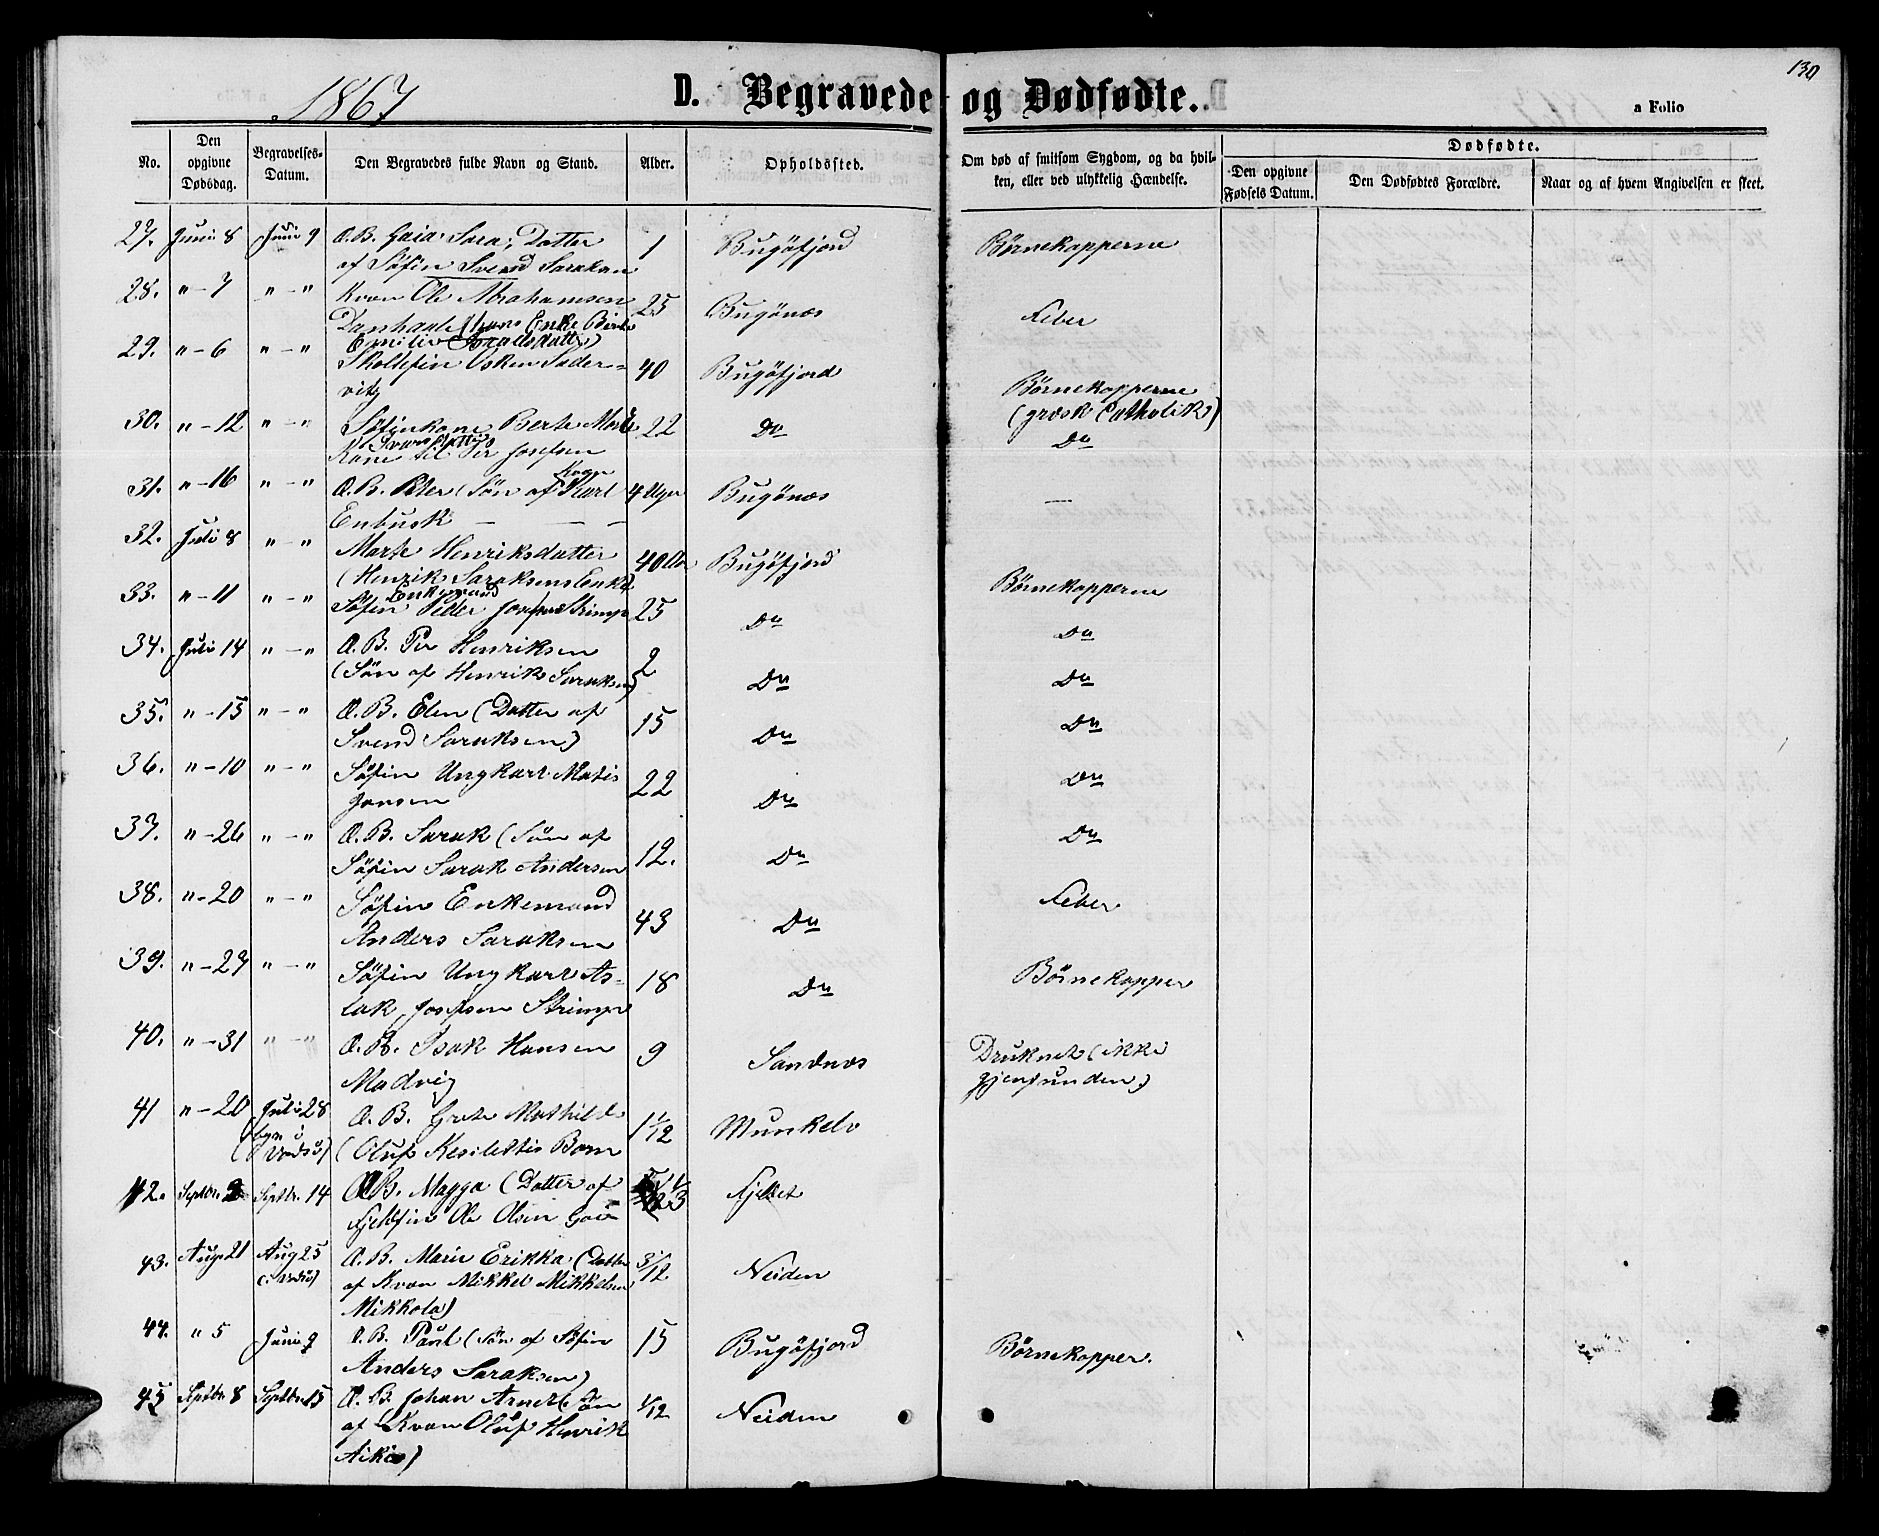 130
1867
D. Begravede og Dødfødte.
a Folio
No.
Den opgivne Dødsdag.
Begravelses-Datum.
Den Begravedes fulde Navn og Stand.
Alder.
Opholdssted.
Om død af smitsom Sygdom, og da hvilken, eller ved ulykkelig Hændelse.
Dødfødte.
Den opgivne Fødsels Datum.
Den Dødfødtes Forældre.
Naar og af hvem Angivelsen er skeet.
27. Juni 8 Juni 9 Æ.B. Gaia Sara, Datter 1 Bugøfjord Børnekopperne
af Søfin Svend Saraksen
28. " - 7 " - " Kvæn Ole Abrahamsen 25 Bugønæs Feber
(hans Enke Birte
29. " - 6 " - " Skoltefin 40 Bugøfjord Børnekopperne
vitz (græsk Catholik)
30. " - 12 " - " Søfinkone Berte Marie 22 Do Do
Kone til Per Josefsen
31. " - 16 " - " Æ.B. Peter (Søn af Karl 4 Uger Bugønæs —
Enbusk — — —
32. Juli 8 " - " Marte Henriksdatter 40 Bugøfjord Børnekopperne
(Henrik Saraksens Enke)
33. " - 11 " - " Enkemand
Søfin Peder Josefsen Strimp 25 Do Do
34. Juli 14 " - " Æ.B. Per Henriksen 2 Do Do
(Søn af Henrik Saraksen)
35. " - 15 " - " Æ.B. Elen (Datter af 15 Do Do
Svend Saraksen)
36. " - 10 " - " Søfin Ungkarl Matis 22 Do Do
Jonsen
37. " - 26 " - " Æ.B. Sarak (Søn af 12. Do Do
Søfin Sarak Andersen
38. " - 20 " - " Søfin Enkemand 43 Do Feber
Anders Saraksen
39. " - 29 " - " Søfin Ungkarl As- 18 Do Børnekopper
lak Josefsen Strimp
40. " - 31 " - " Æ.B. Isak Hansen 9 Sandnæs Druknet (ikke
Madvig gjenfunden)
41 " - 20 Juli 28 Æ.B. Grete Mathilde 1 1/12 Munkelv
(i Vadsø) (Oluf Barn
42. Septbr. Septbr. 14 Æ.B. Magga (Datter af Fjeldet
Fjeldfin Ole Olsen Gaie
43. Aug. 21 Aug 25 Æ.B. Marie Erikka (Datter 3/12 Neiden
(i Vadsø) af Kvæn Mikkel Mikkelsen
Mikkola)
44. " 5 Juni 9 Æ.B. Paul (Søn af Søfin 15 Bugøfjord Børnekopper.
Anders Saraksen)
45 Septbr 8 Septbr. 15 Æ.B. Johan Arnet (Søn 1/12 Neiden
af Kvæn Oluf Henrik
Aikio)